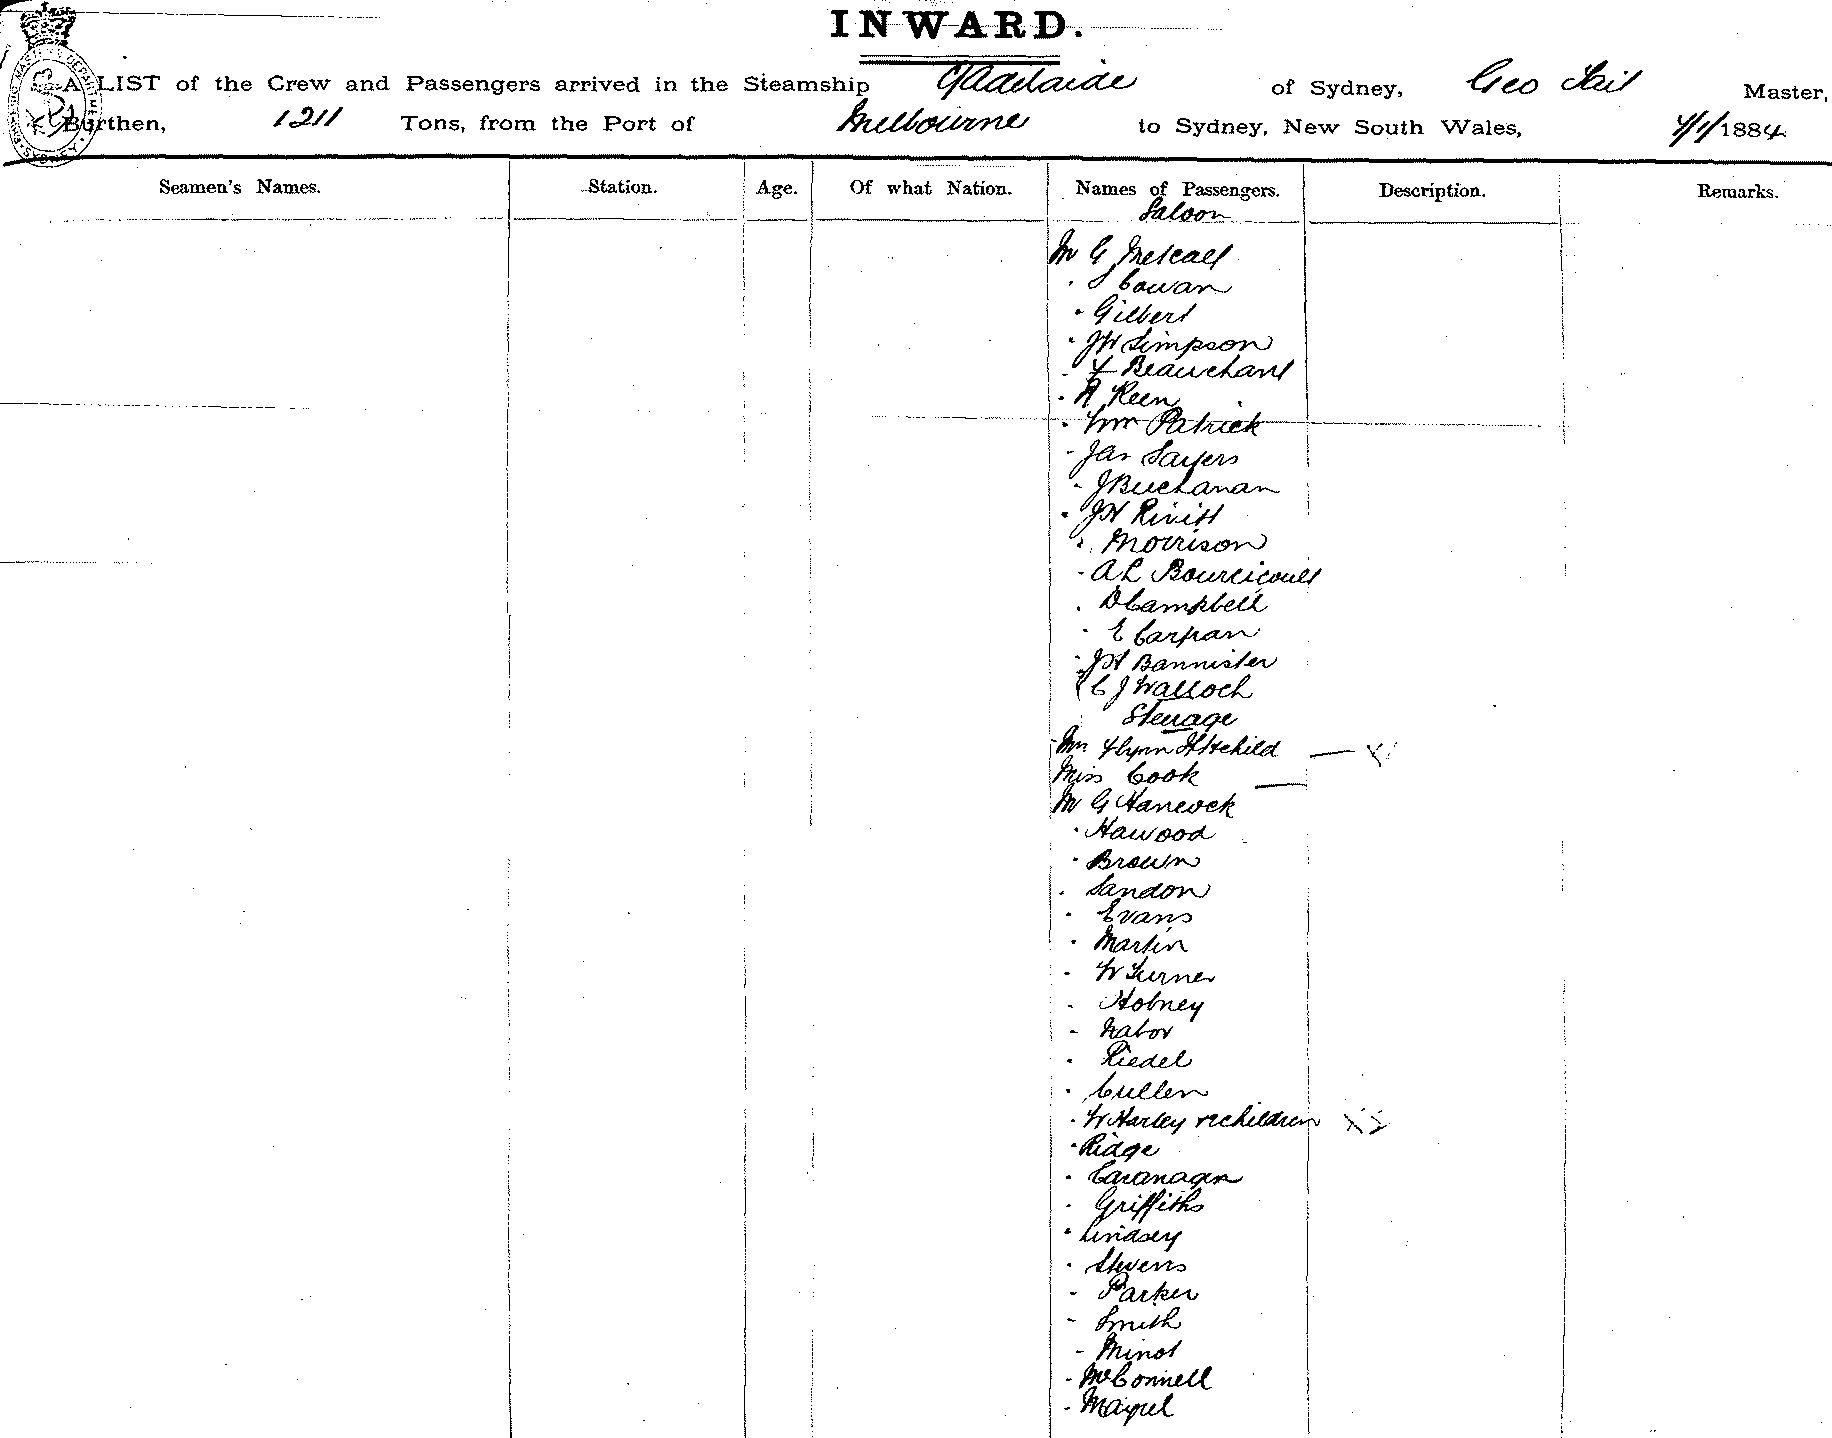 INWARD.
A LIST of the Crew and Passengers arrived in the Steamship Adelaide of Sydney, Geo Master,
Burthen, 1211 Tons, from the Port of Melbourne to Sydney, New South Wales, 1884
Seamen's Names. Station. Age. Of what Nation. Names of Passengers. Description. Remarks.
Saloon
Mr G Metcalf
" Cowan
" Gilbert
" JW Simpson
" F Beauchant
" A Keen
" Wm Patrick
" Jas Sayers
" J Buchanan
" JH Rivitt
" Morrison
" A L Bourcicoult
" D Campbell
" E
" JH Bannister
" C J Walloch
Steerage
Flynn child
Miss Cook
Mr G Hancock
" Hawood
" Brown
" Sandon
" Evans
" Martin
" W Turner
" Hobney
" Nabor
" Riedel
" Cullen
" W Harley children
" Ridge
" Cavanagh
" Griffiths
" Lindsey
" Stevens
" Parker
" Smith
" Minot
" McConnell